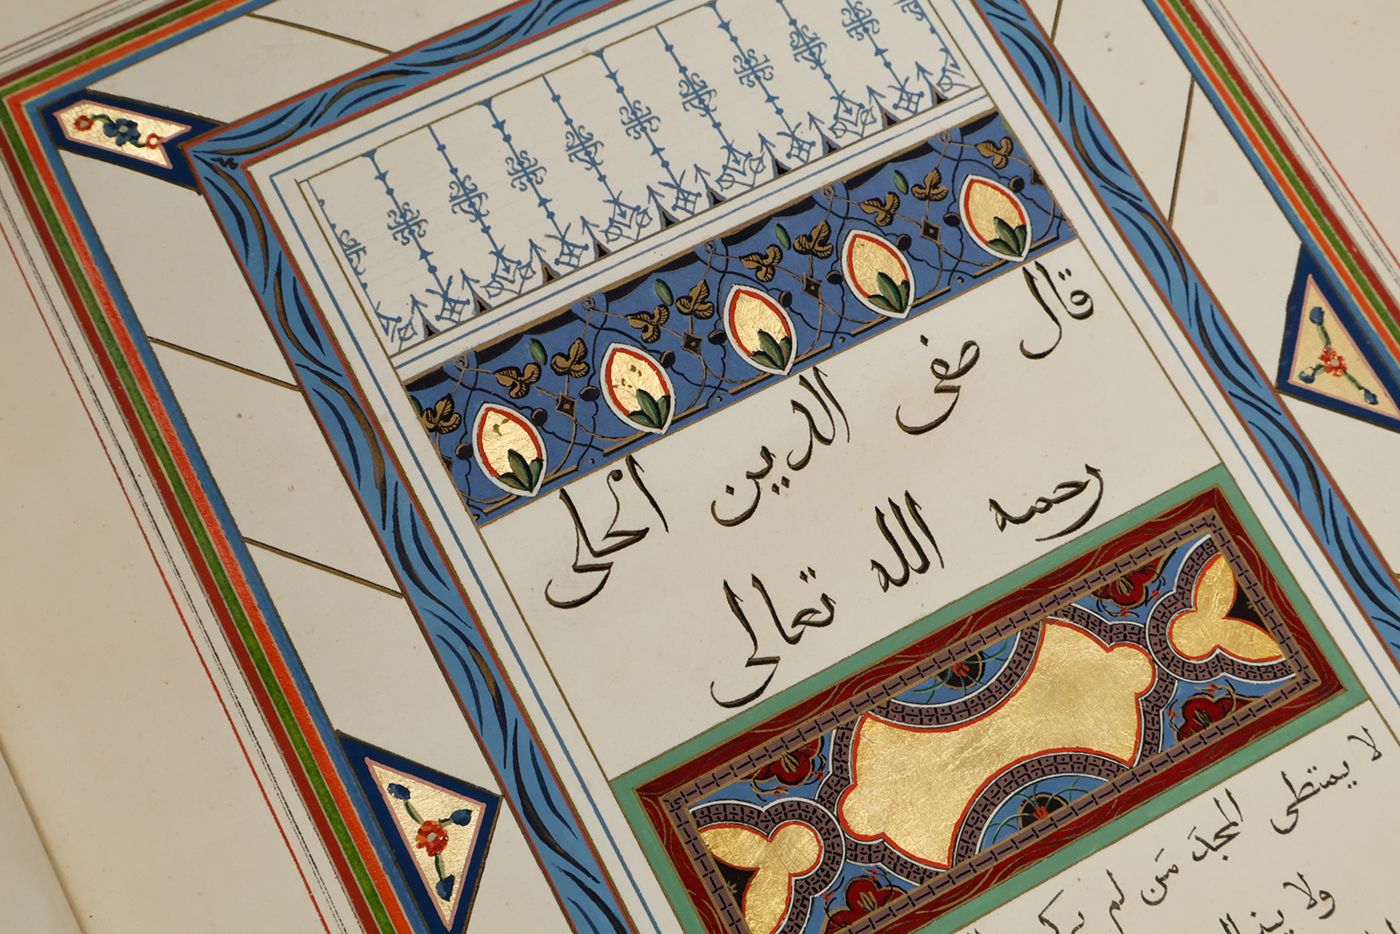 قال صفى الدين الحلى
رحمه الله تعالى
لا يمتطى المجدَ مَن لم يركب
ولا ينال